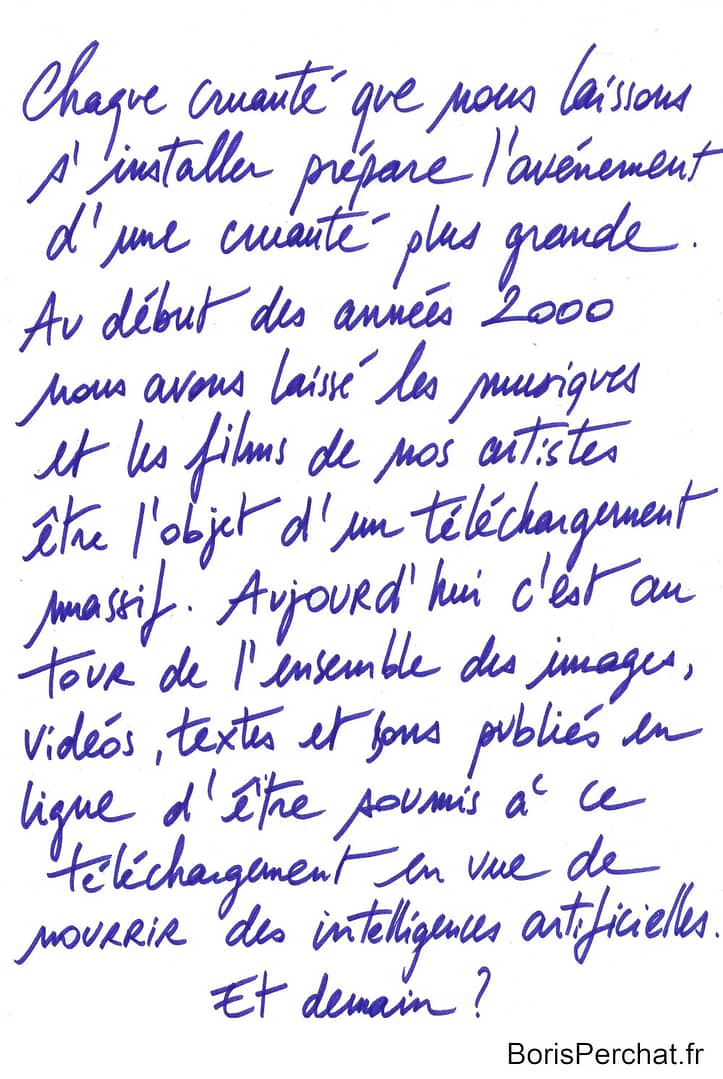 Chaque cruauté que nous laissons
s'installer prépare l'avénement
d'une cruauté plus grande.
Au début des années 2000
nous avons laissé les musiques
et les films de nos artistes
être l'objet d'un téléchargement
massif. Aujourd'hui c'est au
tour de l'ensemble des images,
vidéos, textes et sons publiés en
ligne d'être soumis à ce
téléchargement en vue de
nourrir des intelligences artificielles.
Et demain ?
BorisPerchat.fr